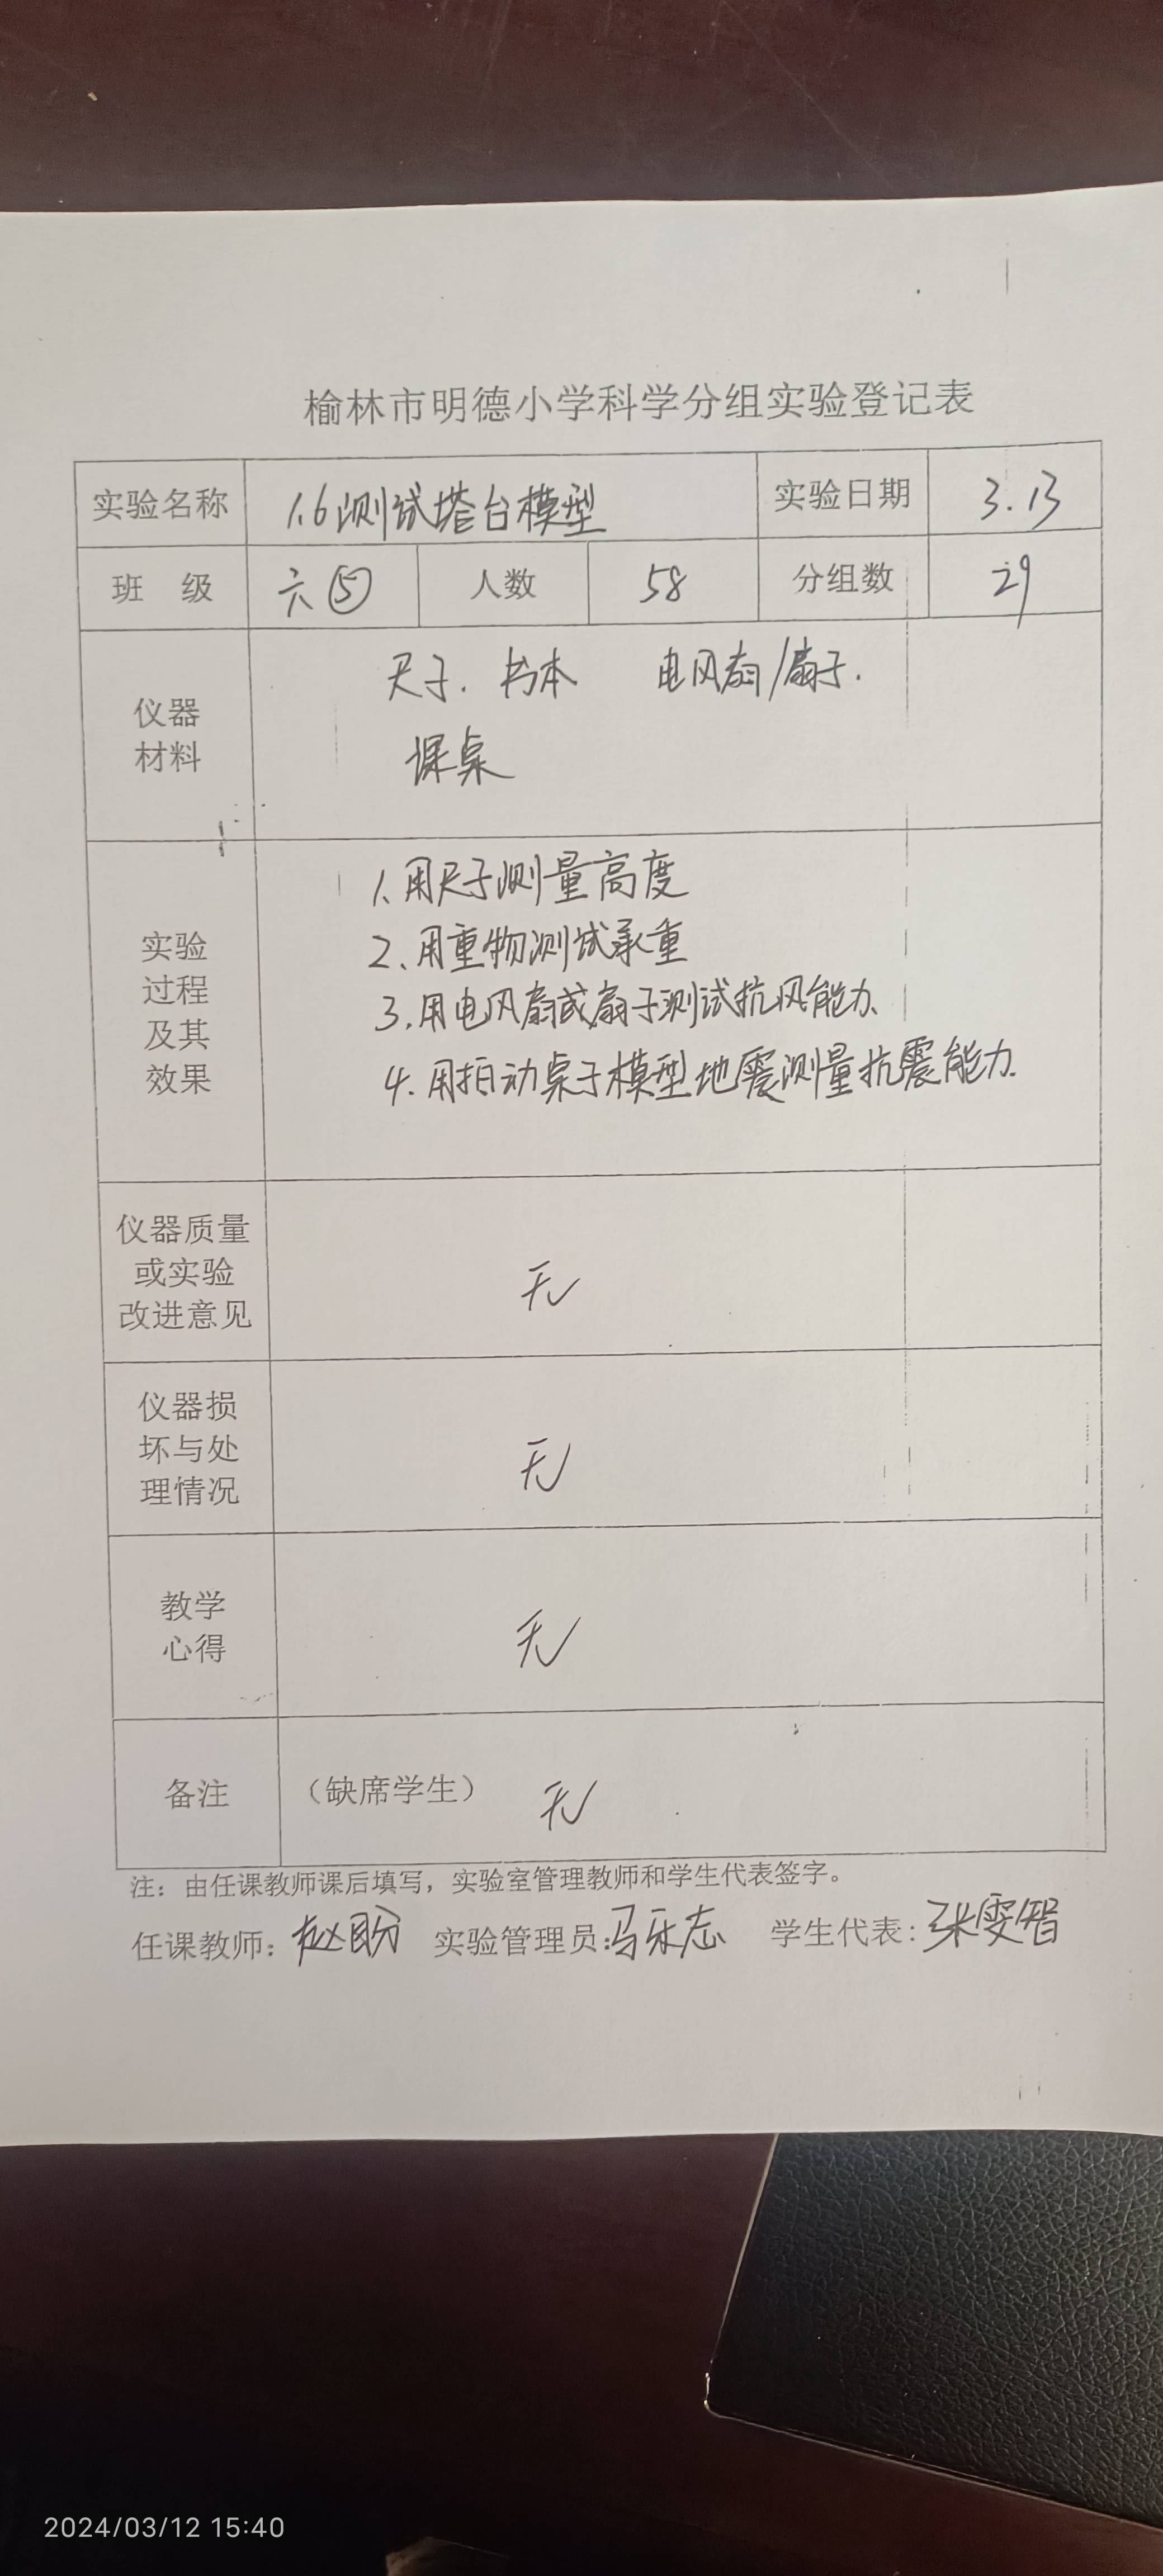 榆林市明德小学科学分组实验登记表
实验名称 1.6测试塔台模型 实验日期 3.13
班 级 六⑤ 人数 58 分组数 29
仪器材料
尺子. 书本 电风扇/扇子.
课桌
实验过程及其效果
1.用尺子测量高度
2、用重物测试承重
3.用电风扇或扇子测试抗风能力.
4.用拍动桌子模型地震测量抗震能力.
仪器质量或实验改进意见 无
仪器损坏与处理情况 无
教学心得 无
备注 (缺席学生) 无
注：由任课教师课后填写，实验室管理教师和学生代表签字。
任课教师：赵盼 实验管理员:马乐志 学生代表:张雯智
2024/03/12 15:40